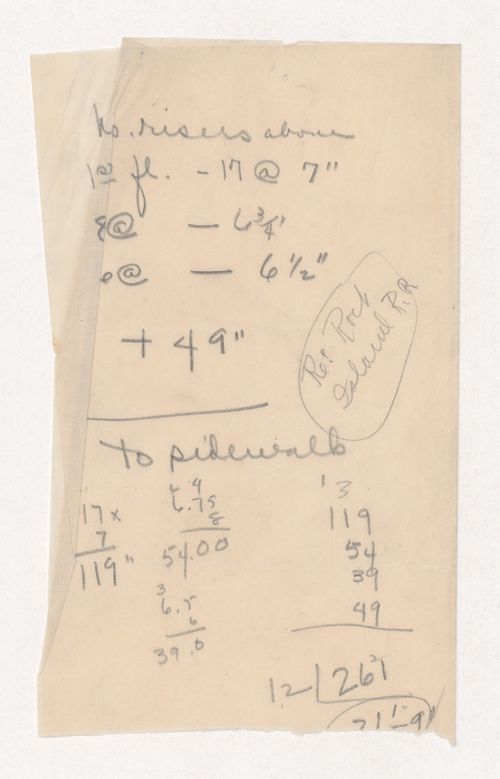 No. risers above
1st fl. - 17 @ 7"
8@ — 6 3/4"
6@ — 6 1/2"
+ 49"
Re: Rock
Island R.R
to sidewalk
17x
7
119"
6 4
6.75
8
54.00
3
6.5
6
39.0
1 3
119
54
39
49
12 261
21'-9"